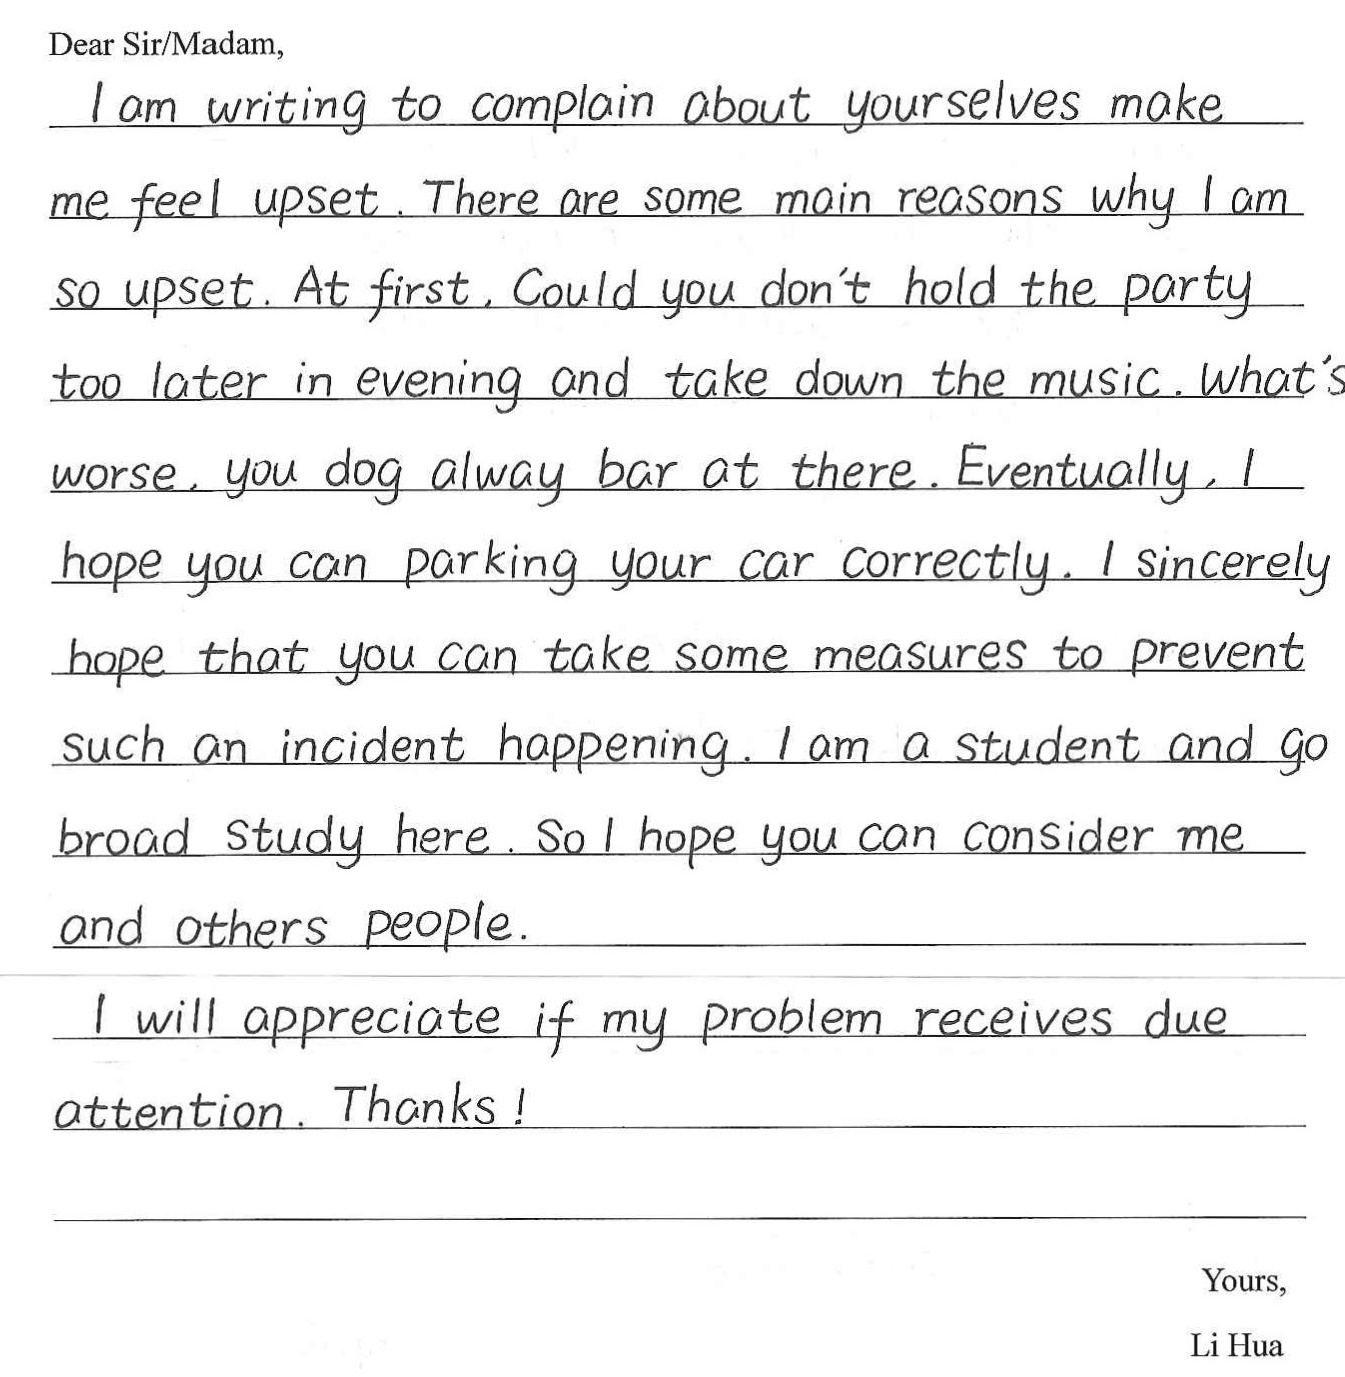 Dear Sir/Madam,
I am writing to complain about yourselves make
me feel upset. There are some main reasons why I am
so upset. At first, Could you don't hold the party
too later in evening and take down the music. What's
worse, you dog alway bar at there. Eventually, I
hope you can parking your car correctly. I sincerely
hope that you can take some measures to prevent
such an incident happening. I am a student and go
broad study here. So I hope you can consider me
and others people.
I will appreciate if my problem receives due
attention. Thanks!
Yours,
Li Hua